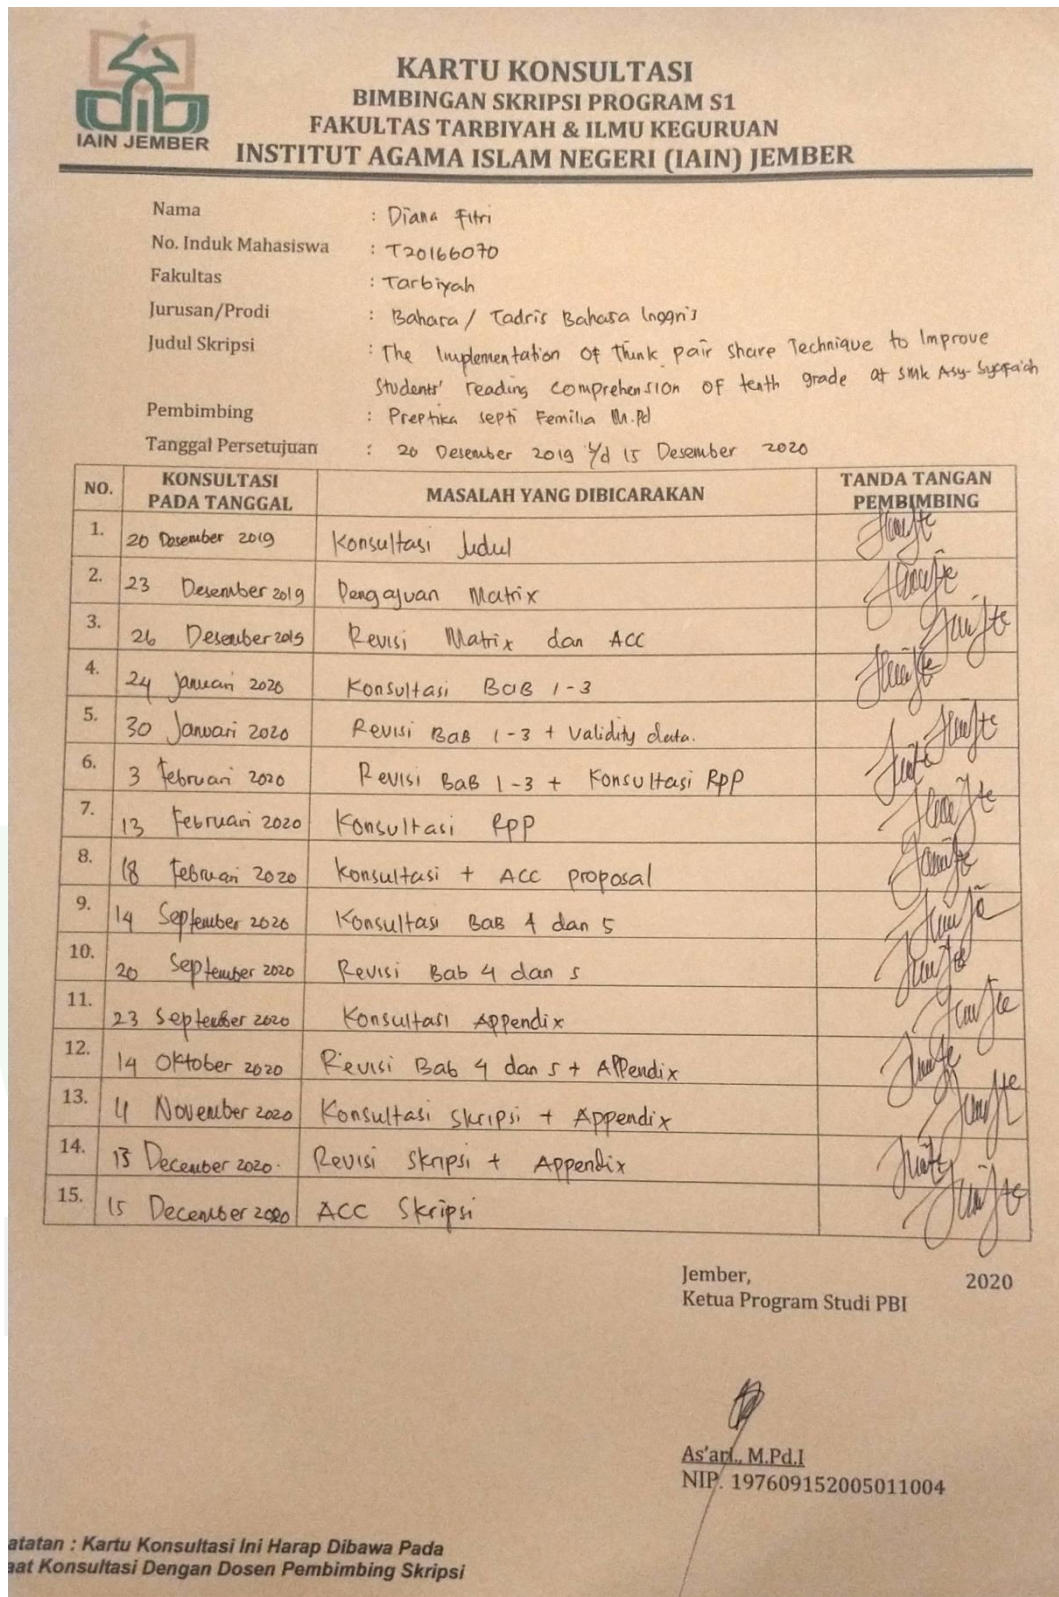 IAIN JEMBER
KARTU KONSULTASI
BIMBINGAN SKRIPSI PROGRAM S1
FAKULTAS TARBIYAH & ILMU KEGURUAN
INSTITUT AGAMA ISLAM NEGERI (IAIN) JEMBER
Nama : Diana Fitri
No. Induk Mahasiswa : T20166070
Fakultas : Tarbiyah
Jurusan/Prodi : Bahasa / Tadris Bahasa Inggris
Judul Skripsi : The Implementation Of Think pair share Technique to Improve
Students' reading comprehension of tenth grade at SMK Asy-Syafa'ah
Pembimbing : Preptika Septi Femilia M.Pd
Tanggal Persetujuan : 20 Desember 2019 s/d 15 Desember 2020
NO. KONSULTASI PADA TANGGAL MASALAH YANG DIBICARAKAN TANDA TANGAN PEMBIMBING
1. 20 Desember 2019 Konsultasi Judul
2. 23 Desember 2019 Pengajuan Matrix
3. 26 Desember 2019 Revisi Matrix dan ACC
4. 24 Januari 2020 Konsultasi BAB 1-3
5. 30 Januari 2020 Revisi BAB 1-3 + Validity data.
6. 3 Februari 2020 Revisi BAB 1-3 + Konsultasi RPP
7. 13 Februari 2020 Konsultasi RPP
8. 18 Februari 2020 Konsultasi + ACC proposal
9. 14 September 2020 Konsultasi BAB 4 dan 5
10. 20 September 2020 Revisi Bab 4 dan 5
11. 23 September 2020 Konsultasi Appendix
12. 14 Oktober 2020 Revisi Bab 4 dan 5 + Appendix
13. 4 November 2020 Konsultasi Skripsi + Appendix
14. 13 December 2020. Revisi Skripsi + Appendix
15. 15 December 2020 ACC Skripsi
Jember, 2020
Ketua Program Studi PBI
As'ari., M.Pd.I
NIP. 197609152005011004
atatan : Kartu Konsultasi Ini Harap Dibawa Pada
aat Konsultasi Dengan Dosen Pembimbing Skripsi